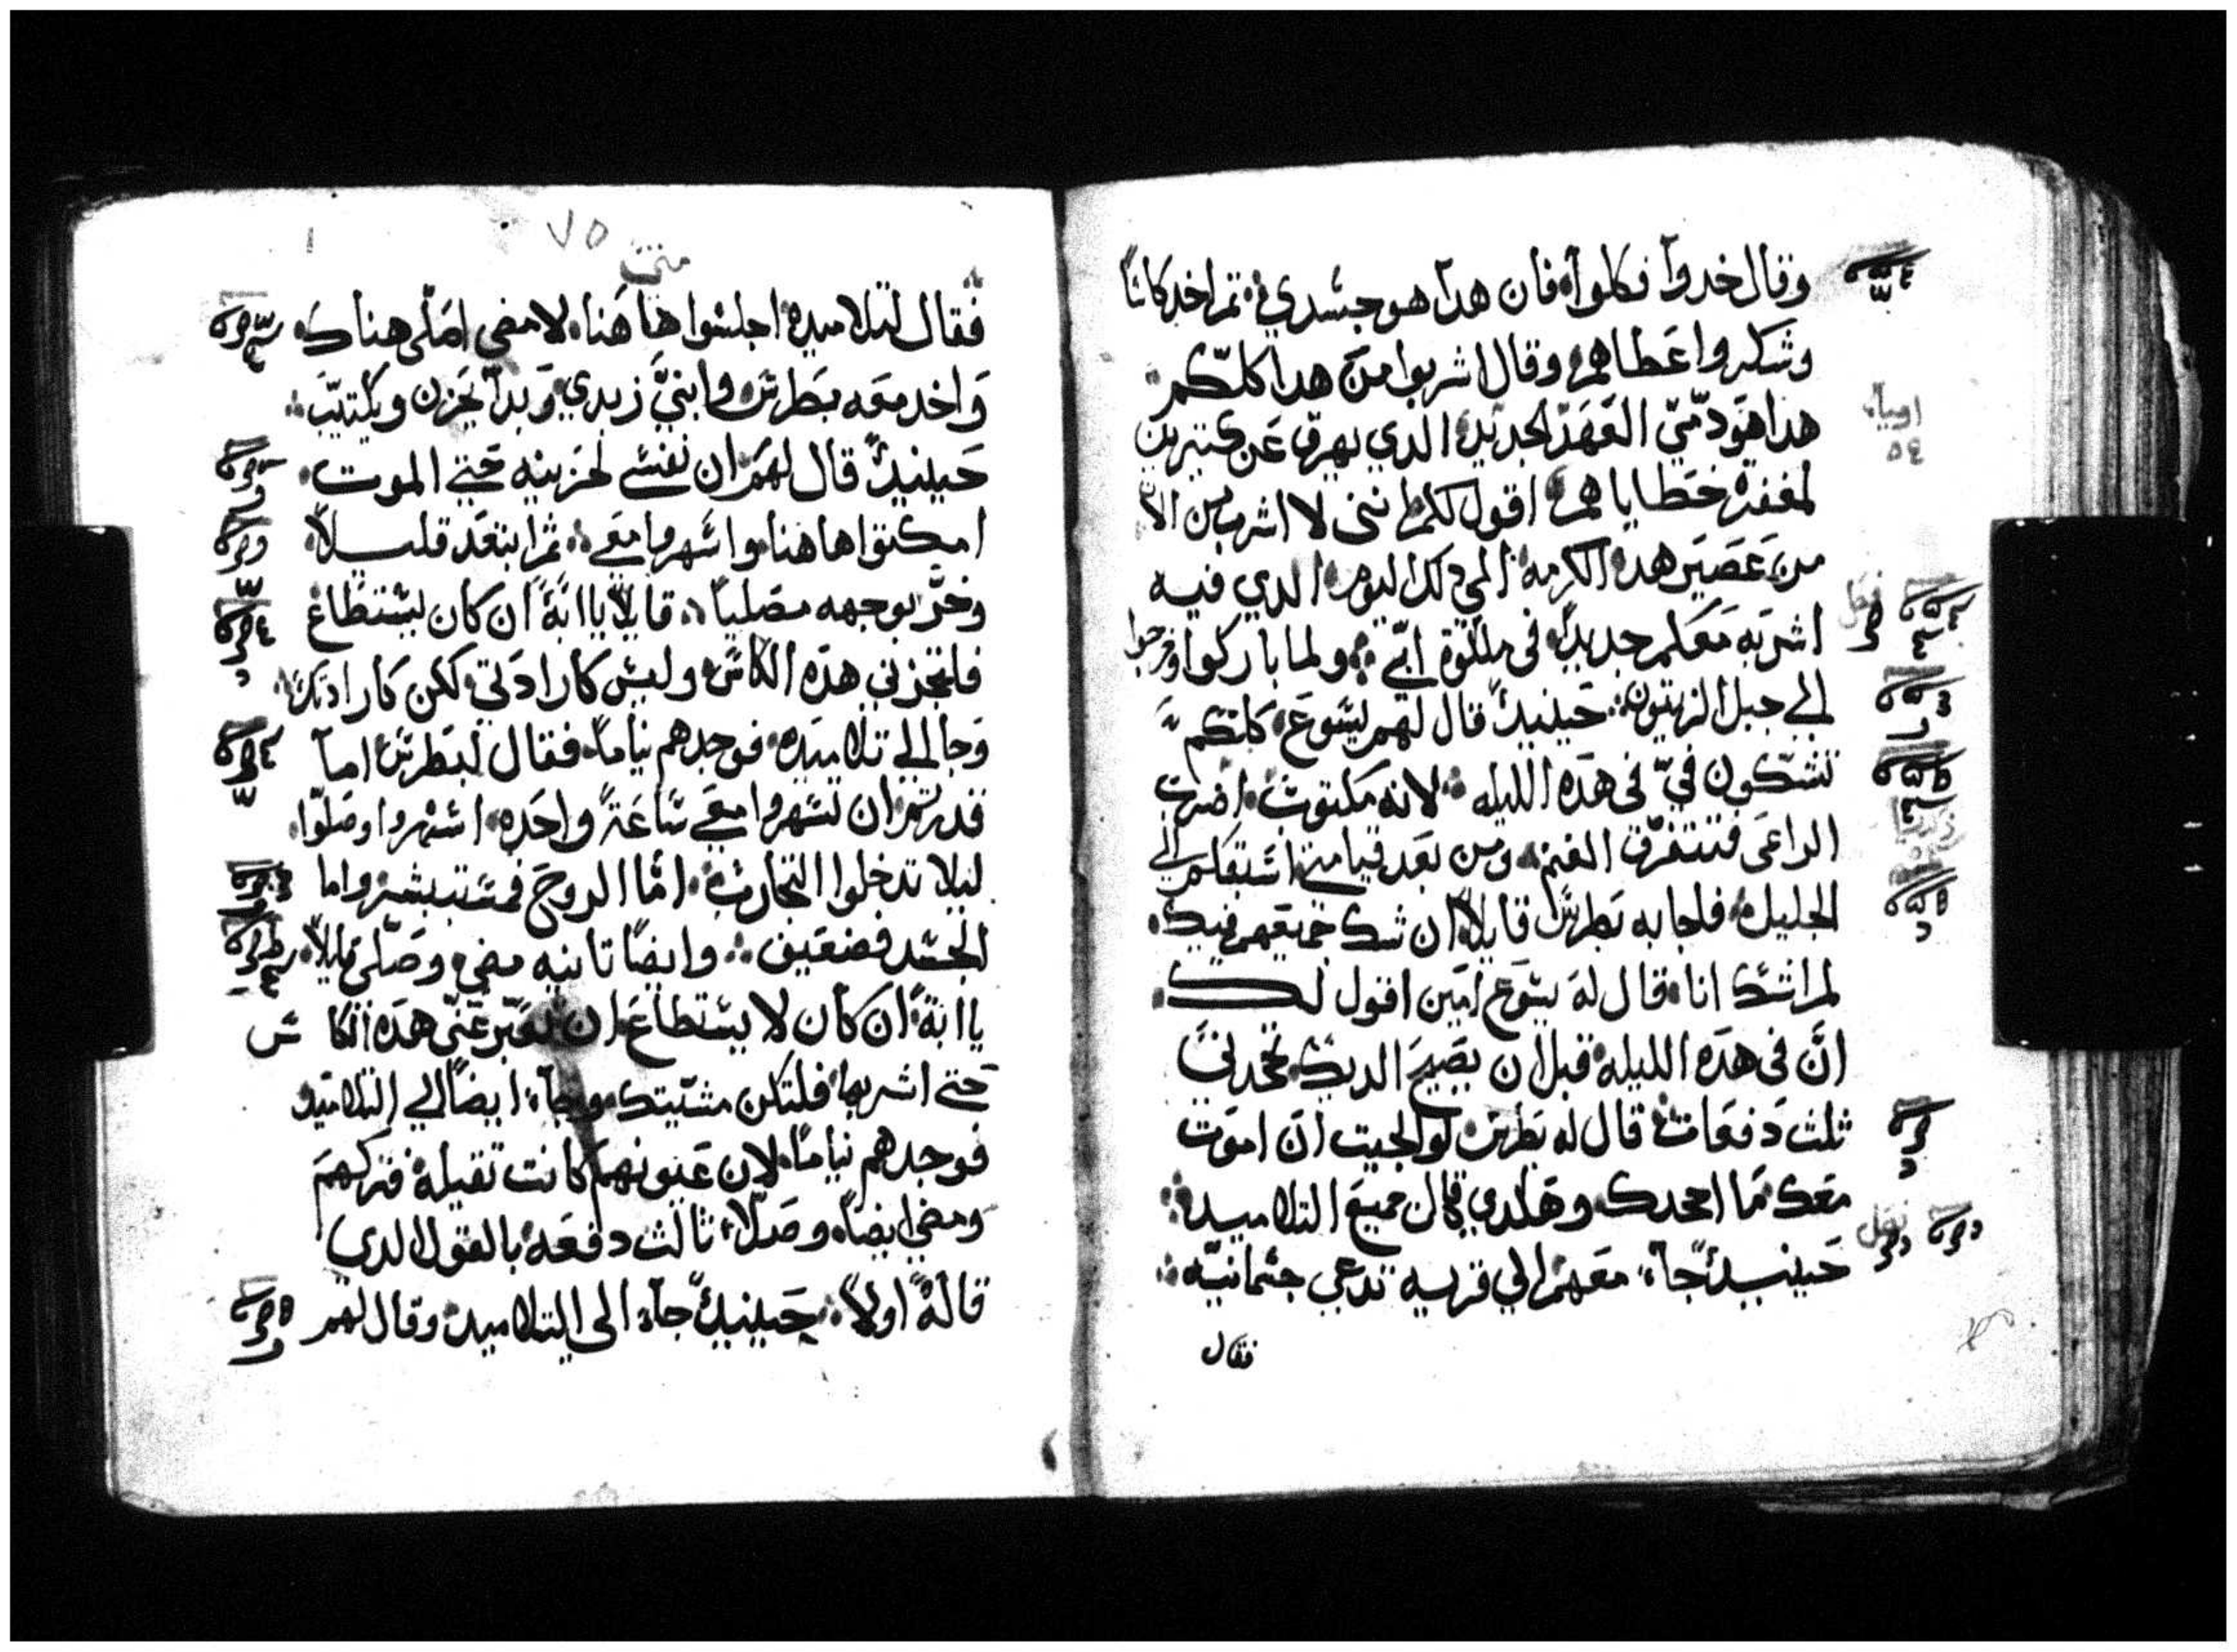 وقال خدوا فكلوا فان هدا هو جسدي ثم اخد كاسًا
وشكر واعطاهم وقال اشربوا من هدا كلكم
هدا هو دمي العهد الجديد الدي يهرق عن كتيرين
لمغفرة خطاياهم اقول لكم انني لا اشرب من الان
من عصير هده الكرمه الي دلك اليوم الدي فيه
اشربه معكم جديدًا في ملكوة ابي ولما باركوا وخرجوا
الي جبل الزيتون حينيدٍ قال لهم يسوع كلكم
تشكون في في هده الليله لانه مكتوب اضرب
الراعي فتتفرق الغنم ومن بعد قيامتي اسبقكم الي
الجليل فاجابه بطرس قايلًا ان شك جميعهم فيك
لم اشك انا قال له يسوع امين اقول لك
ان في هده الليله قبل ان يصيح الديك تجحدني
ثلث دفعات قال له بطرس لو الجيت ان اموت
معك ما اجحدك وهكدي قال جميع التلاميد
حينيدٍ جآء معهم الي قريه تدعي جثمانيه
فقال
٧٥
متي
فقال لتلاميده اجلسوا هاهنا لامضي اصلي هناك
واخد معه بطرس وابني زبدي وبدا يحزن ويكتيب
حينيدٍ قال لهم ان نفسي لحزينه حتي الموت
امكتوا هاهنا واسهروا معي ثم ابتعد قليلًا
وخر بوجهه مصليًا قايلًا يا ابة ان كان يستطاع
فلتجزني هده الكاس وليس كارادتي لكن كارادتك
وجا الي تلاميده فوجدهم نيامًا فقال لبطرس اما
قدرتم ان تسهروا معي ساعة واحده اسهروا وصلوا
ليلا تدخلوا التجارب اما الروح فمستبشر واما
الجسد فضعيف وايضًا تانيه مضي وصلي قايلًا
يا ابة ان كان لا يستطاع ان تعبر عني هده الكاس
حتي اشربها فلتكن مشيتك وجآء ايضًا الي التلاميد
فوجدهم نيامًا لان عيونهم كانت تقيله فتركهم
ومضي ايضًا وصلا ثالث دفعه بالقول الدي
قاله اولًا حينيدٍ جآء الي التلاميد وقال لهم